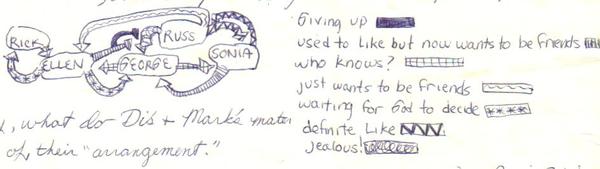 RICK
ELLEN
RUSS
GEORGE
SONIA
Giving up
used to like but now wants to be friends
who knows?
just wants to be friends
waiting for God to decide
definite Like
jealous!
what do Di's + Mark's
of their "arrangement."